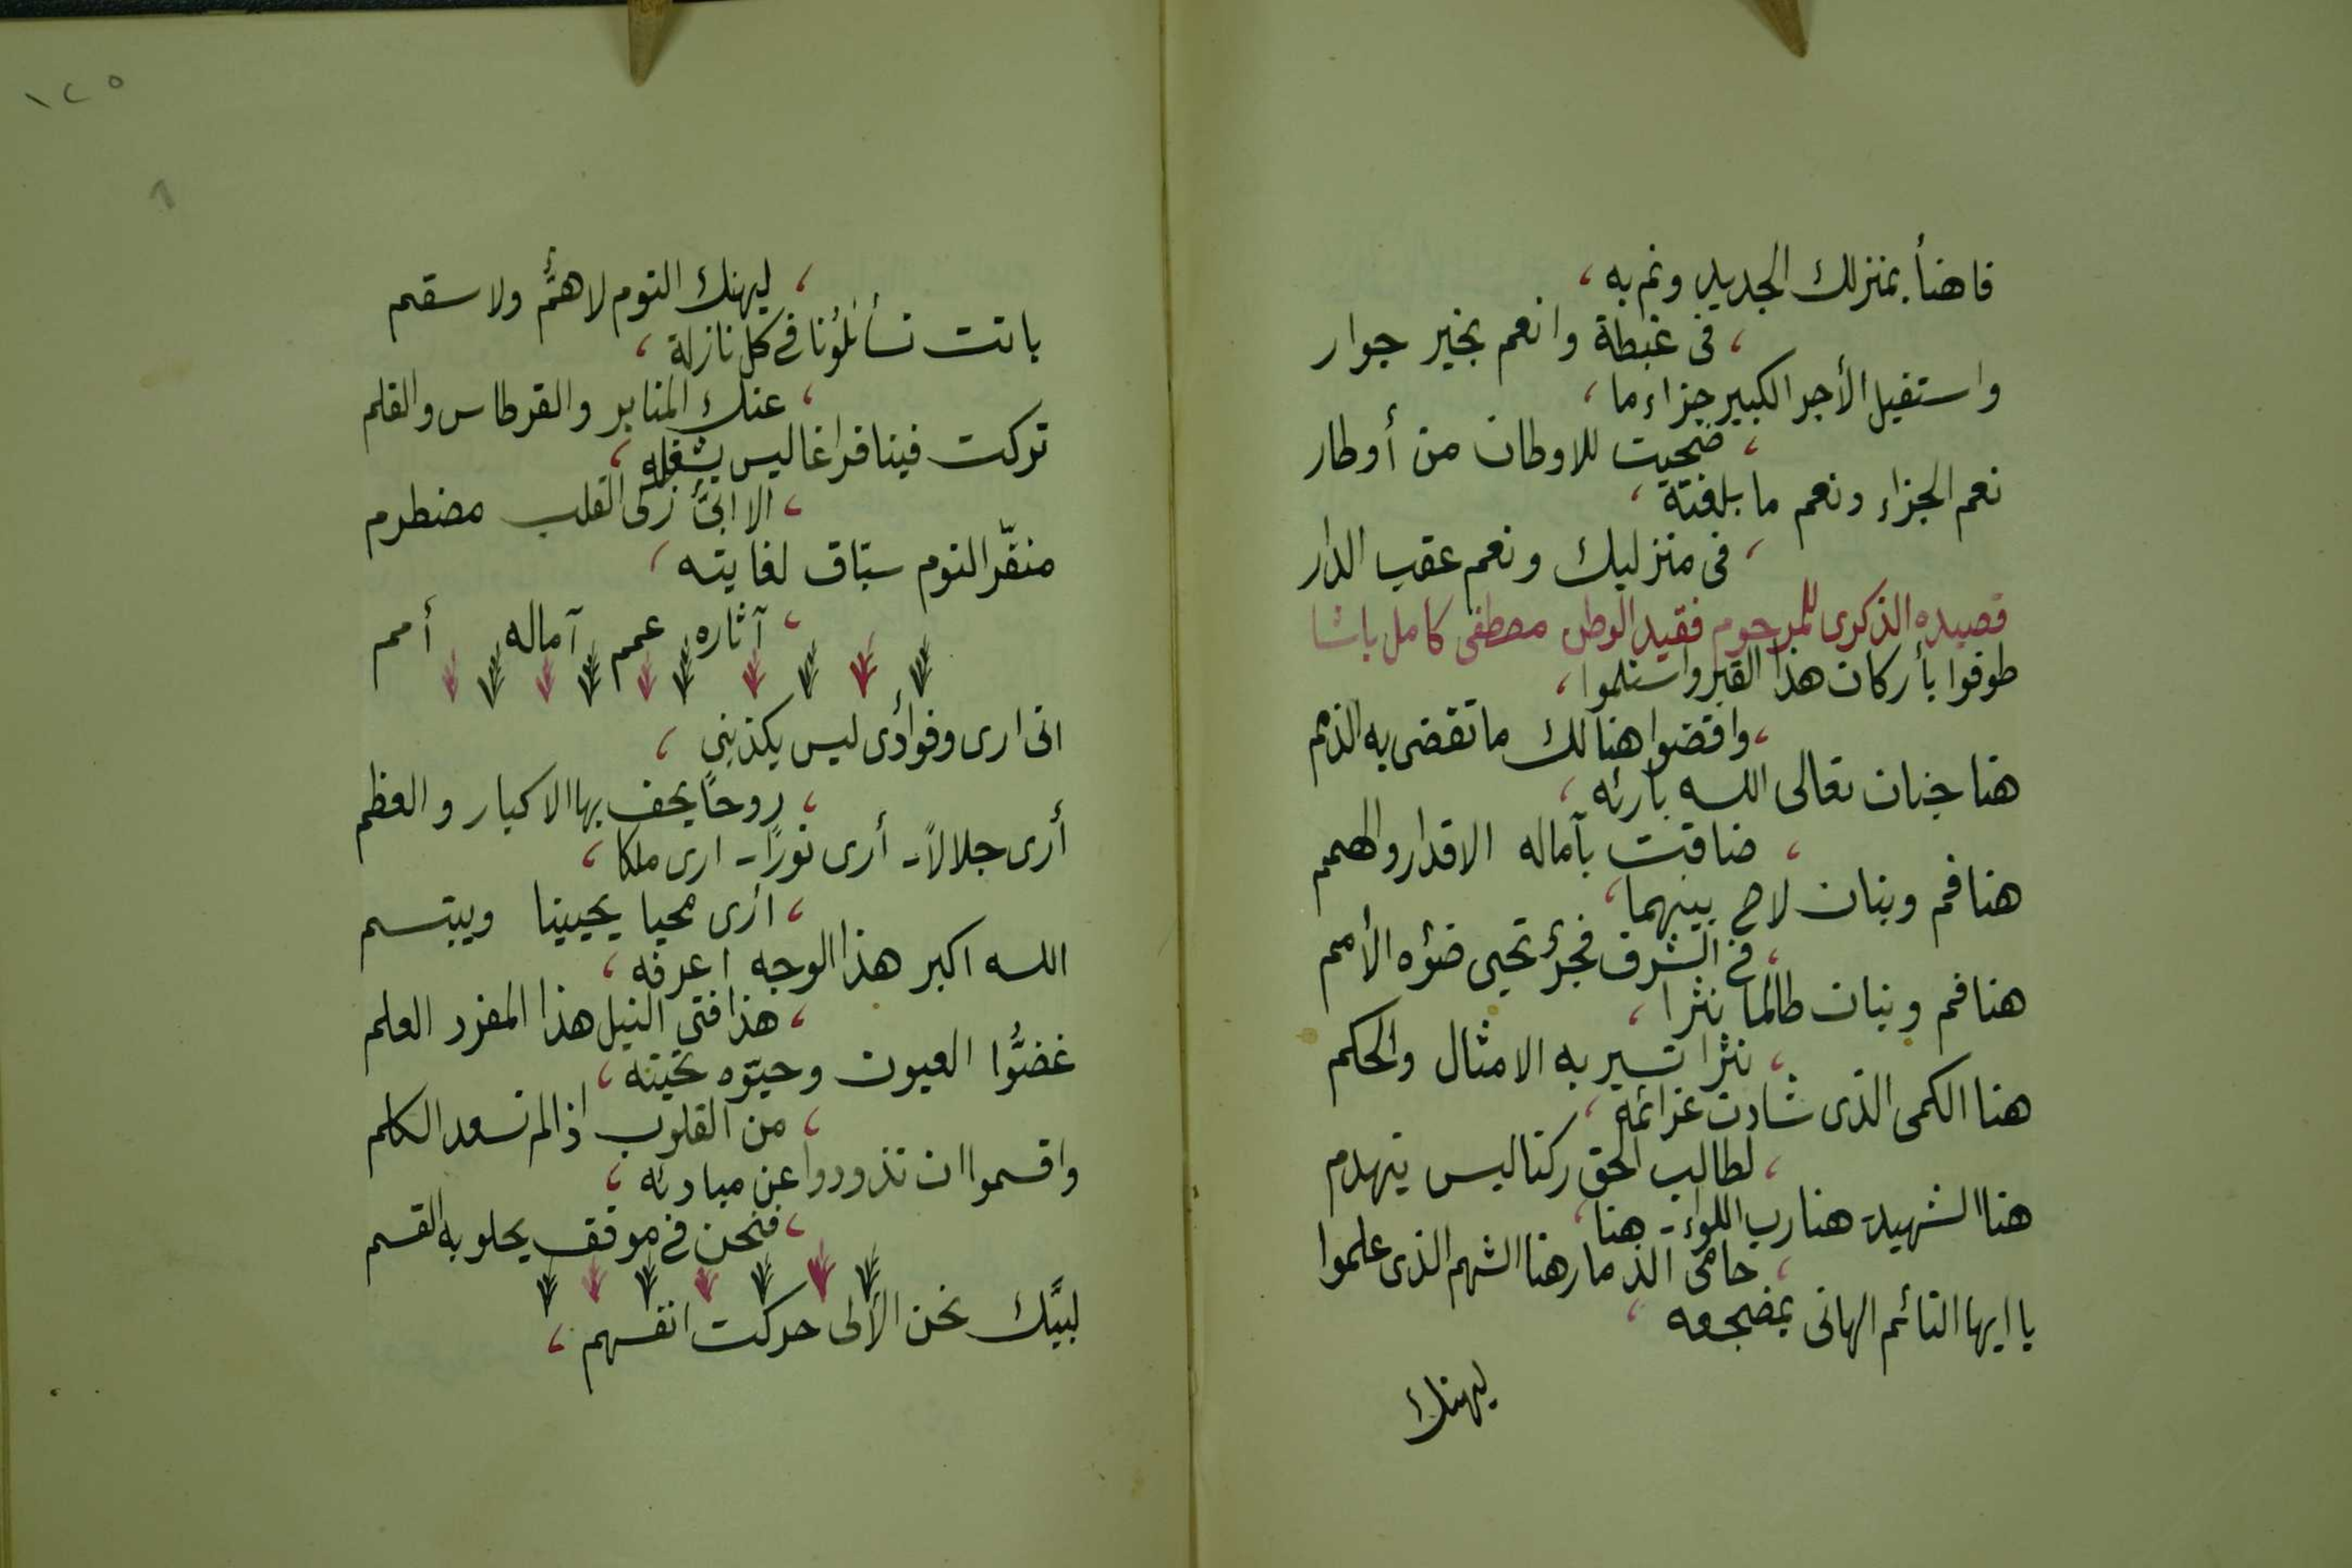 فاهنأ بمنزلك الجديد ونم به ،
، فى غبطة وانعم بخير جوار
واستقبل الأجر الكبير جزاء ما ،
، ضحيت للاوطان من أوطار
نعم الجزاء ونعم ما بلغته ،
، فى منزليك ونعم عقبى الدار
قصيده الذكرى للمرحوم فقيد الوطن مصطفى كامل باشا
طوفوا بأركان هذا القبر واستلموا ،
، واقضوا هنالك ما تقضى به الذمم
هنا جنان تعالى الله بارئه ،
، ضاقت بآماله الاقدار والهمم
هنا فم وبنان لاح بينهما ،
، فى الشرق فجرٌ تحيى ضوءه الأمم
هنا فم وبنان طالما نثرا ،
، نثرا تسير به الامثال والحكم
هنا الكمى الذى شادت عزائمه ،
، لطالب الحق ركنا ليس ينهدم
هنا الشهيد - هنا رب اللواء - هنا ،
، حامى الذمار هنا الشهم الذى علموا
يا ايها النائم الهانى بمضجعه ،
ليهنك
١٢٥
، ليهنك النوم لا همٌّ ولا سقم
باتت تسائلُنا فى كل نازلة ،
، عنك المنابر والقرطاس والقلم
تركت فينا فراغا ليس يشغله ،
، الا ابىٌّ زكى القلب مضطرم
منفّر النوم سبّاق لغايته ،
، آثاره عمم آماله أمم
انى ارى وفوأدى ليس يكذبنى ،
، روحًا يحف بها الاكبار والعظم
أرى جلالاً - أرى نورًا - ارى ملكا ،
، أرى محيا يحيينا ويبتسم
الله اكبر هذا الوجه اعرفه ،
، هذا فتى النيل هذا المفرد العلم
غضُّوا العيون وحيّوه تحيته ،
، من القلوب اذا لم تسعد الكلم
واقسموا ان تذودوا عن مبادئه ،
، فنحن فى موقف يحلو به القسم
لبيَّك نحن الألى حركت انفسهم ،